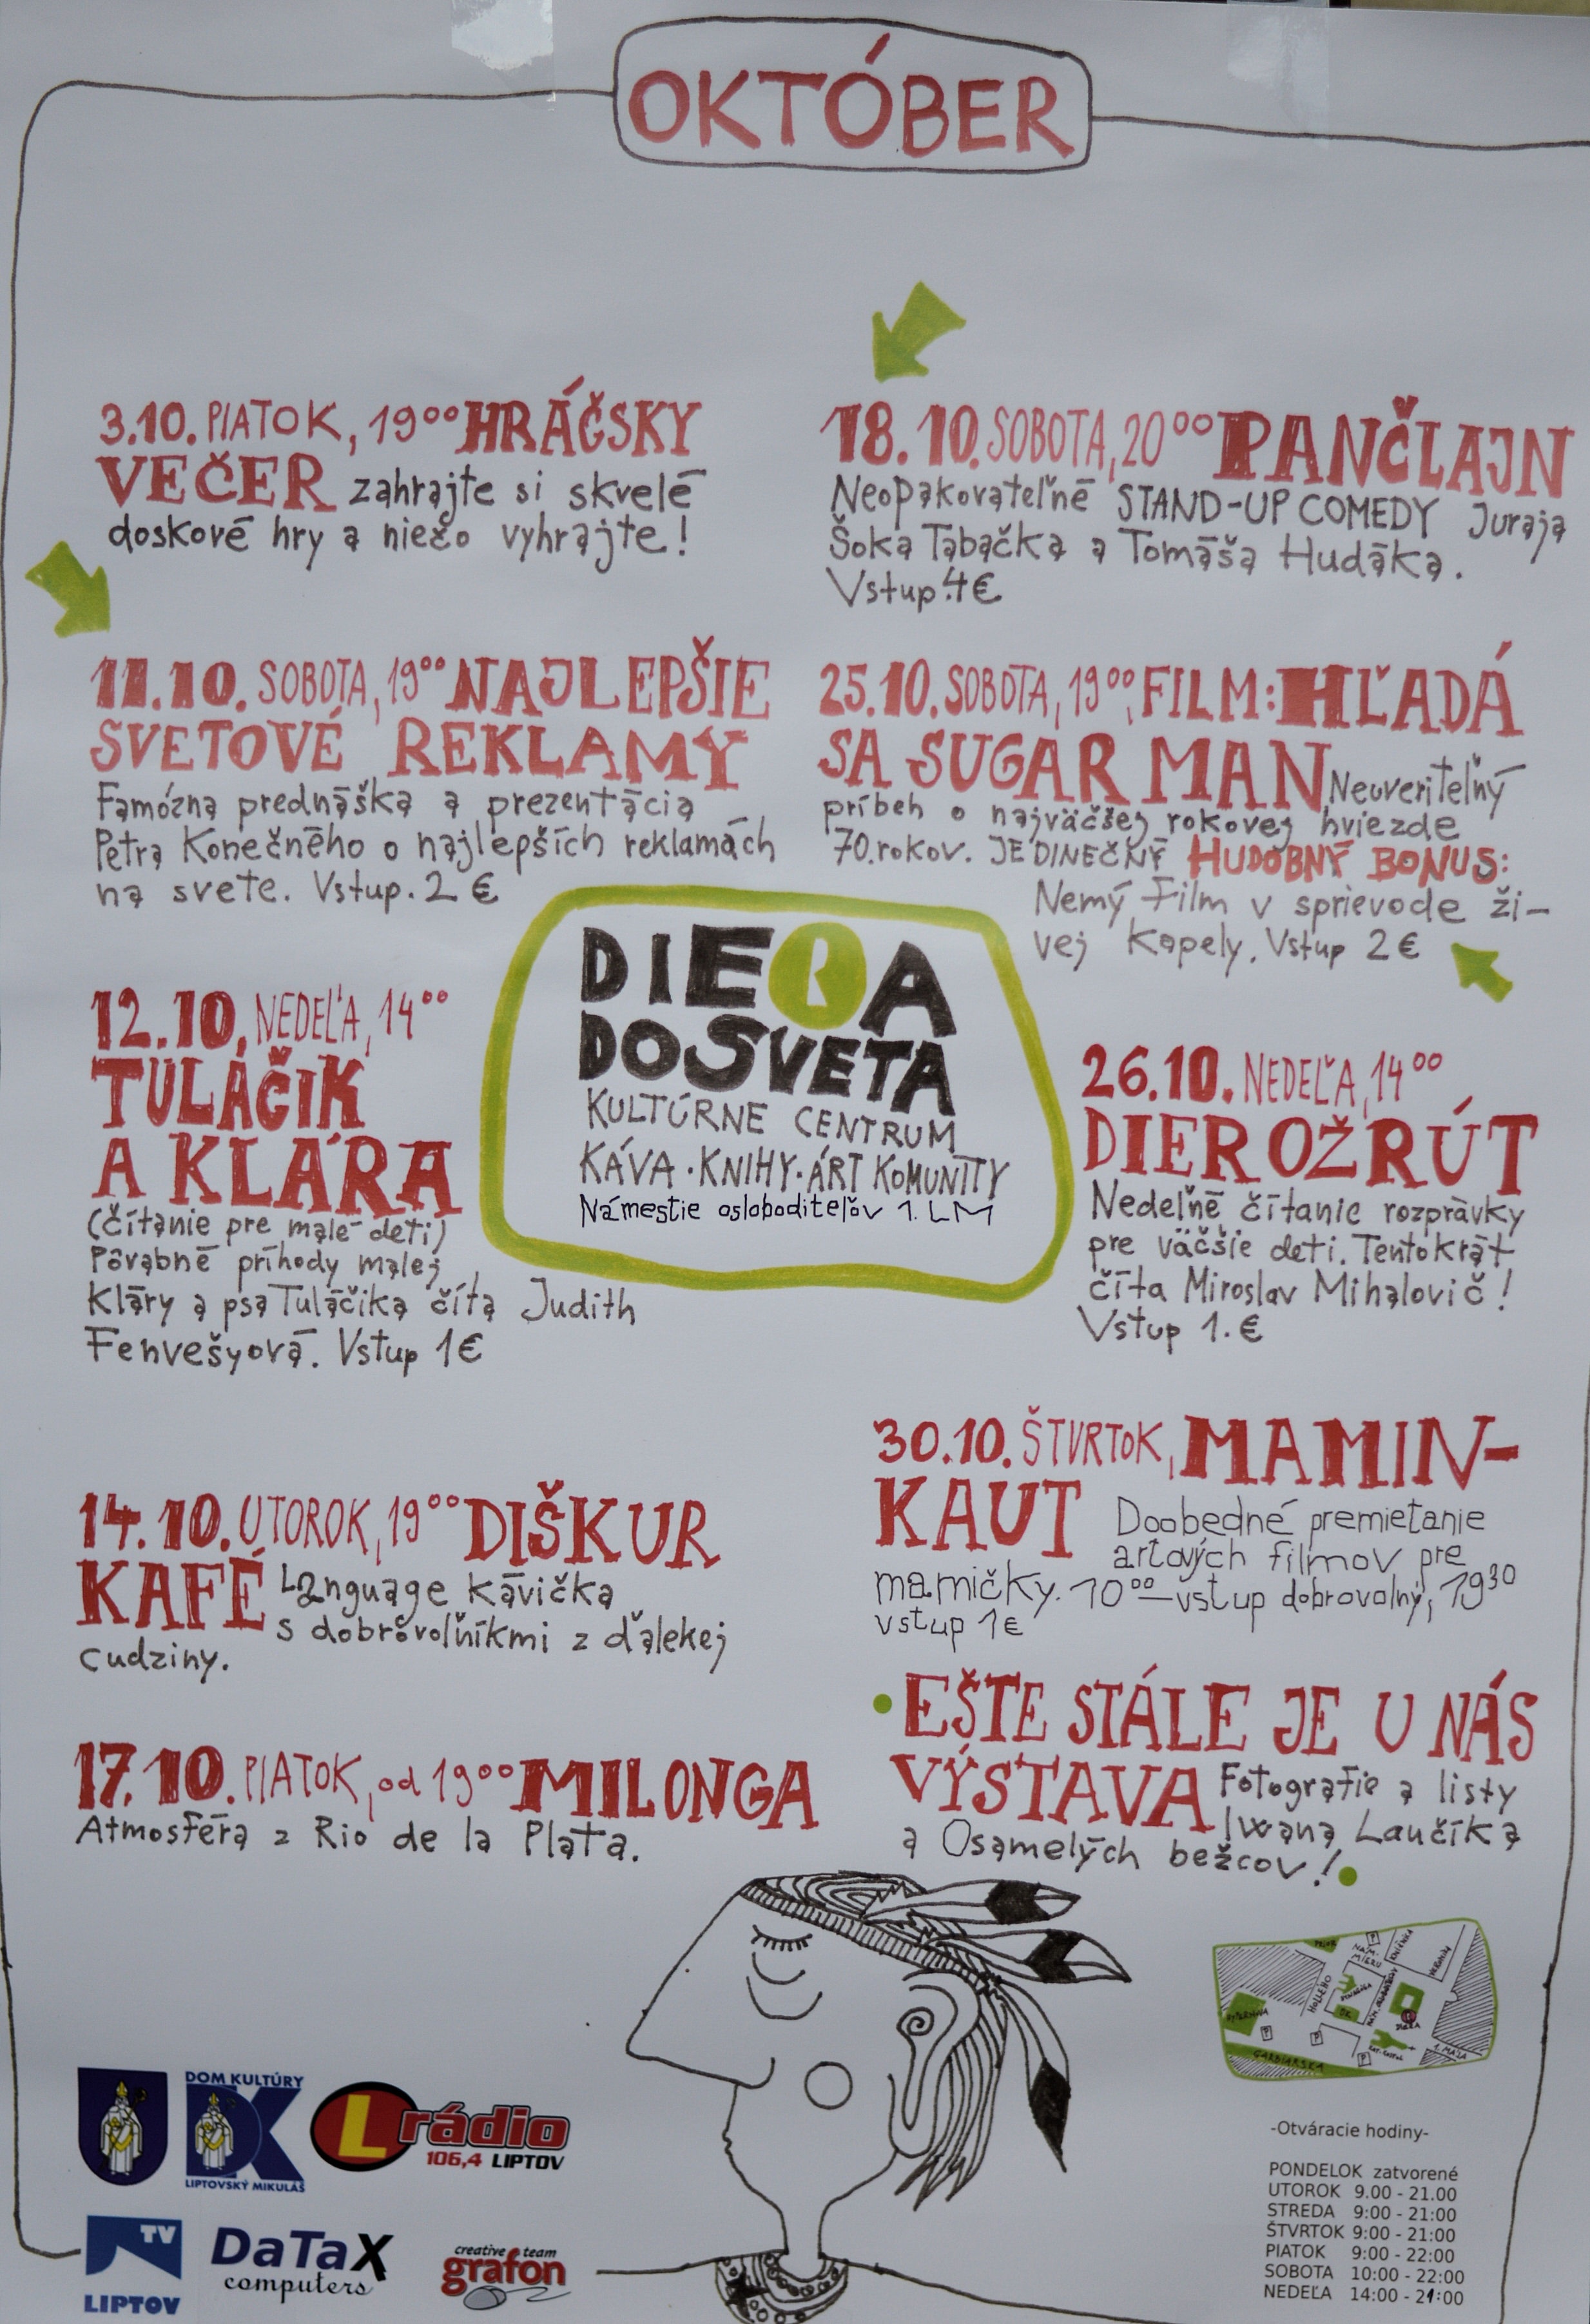 OKTÓBER
3.10. PIATOK, 19⁰⁰ HRÁČSKY
VEČER zahrajte si skvelé
doskové hry a niečo vyhrajte!
11.10. SOBOTA, 19⁰⁰ NAJLEPŠIE
SVETOVÉ REKLAMY
Famózna prednáška a prezentácia
Petra Konečného o najlepších reklamách
na svete. Vstup. 2 €
12.10. NEDEĽA, 14⁰⁰
TULÁČIK
A KLÁRA
(čítanie pre malé deti)
Pôvabné príhody malej
Kláry a psa Tuláčika číta Judith
Fehvešyová. Vstup 1€
14.10. UTOROK, 19⁰⁰ DIŠKUR
KAFÉ Language kávička
s dobrovoľníkmi z ďalekej
cudziny.
17.10. PIATOK, od 19⁰⁰ MILONGA
Atmosféra z Rio de la Plata.
18.10. SOBOTA, 20⁰⁰ PANČLAJN
Neopakovateľné STAND-UP COMEDY Juraja
Šoka Tabačka a Tomáša Hudáka.
Vstup 4€
25.10. SOBOTA, 19⁰⁰, FILM: HĽADÁ
SA SUGAR MAN Neuveriteľný
príbeh o najväčšej rokovej hviezde
70.rokov. JEDINEČNÝ HUDOBNÝ BONUS:
Nemý Film v sprievode ži-
vej kapely. Vstup 2€
DIERA
DO SVETA
KULTÚRNE CENTRUM
KÁVA · KNIHY · ART KOMUNITY
Námestie osloboditeľov 1. LM
26.10. NEDEĽA, 14⁰⁰
DIEROŽRÚT
Nedeľné čítanie rozprávky
pre väčšie deti. Tentokrát
číta Miroslav Mihalovič!
Vstup 1.€
30.10. ŠTVRTOK, MAMIN-
KAUT Doobedné premietanie
artových filmov pre
mamičky. 10⁰⁰ – vstup dobrovoľný, 19³⁰
vstup 1€
• EŠTE STÁLE JE U NÁS
VÝSTAVA Fotografie a listy
Iwana Laučíka
a Osamelých bežcov! •
NÁM.
MIERU
HOLLÉHO
DK
DIERA
GARBIARSKA
1. MÁJA
P
P
P
P
-Otváracie hodiny-
PONDELOK zatvorené
UTOROK 9.00 - 21.00
STREDA 9:00 - 21:00
ŠTVRTOK 9:00 - 21:00
PIATOK 9:00 - 22:00
SOBOTA 10:00 - 22:00
NEDEĽA 14:00 - 21:00
DOM KULTÚRY
DK
LIPTOVSKÝ MIKULÁŠ
L rádio
106,4 LIPTOV
TV
LIPTOV
DaTaX
computers
creative team
grafon